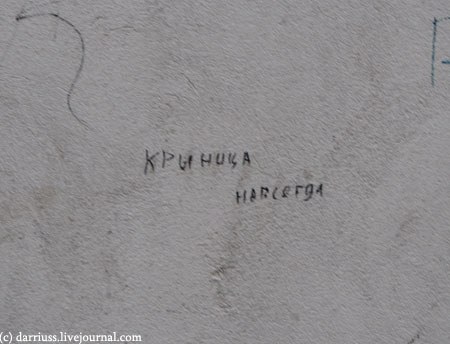 КРЫНИЦА
НАВСЕГДА
(c) darriuss.livejournal.com